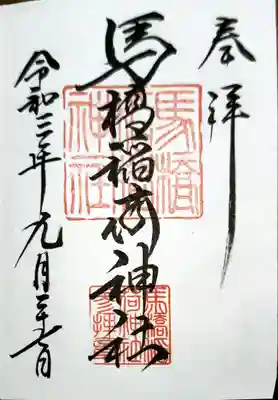 奉拝
馬橋稲荷神社
令和三年九月二十七日
馬橋
神社
馬橋稲
荷神社